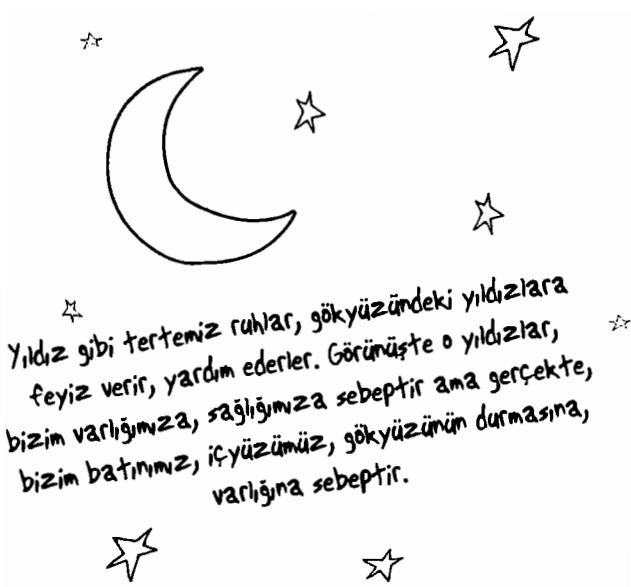 Yıldız gibi tertemiz ruhlar, gökyüzündeki yıldızlara
feyiz verir, yardım ederler. Görünüşte o yıldızlar,
bizim varlığımıza, sağlığımıza sebeptir ama gerçekte,
bizim batınımız, içyüzümüz, gökyüzünün durmasına,
varlığına sebeptir.